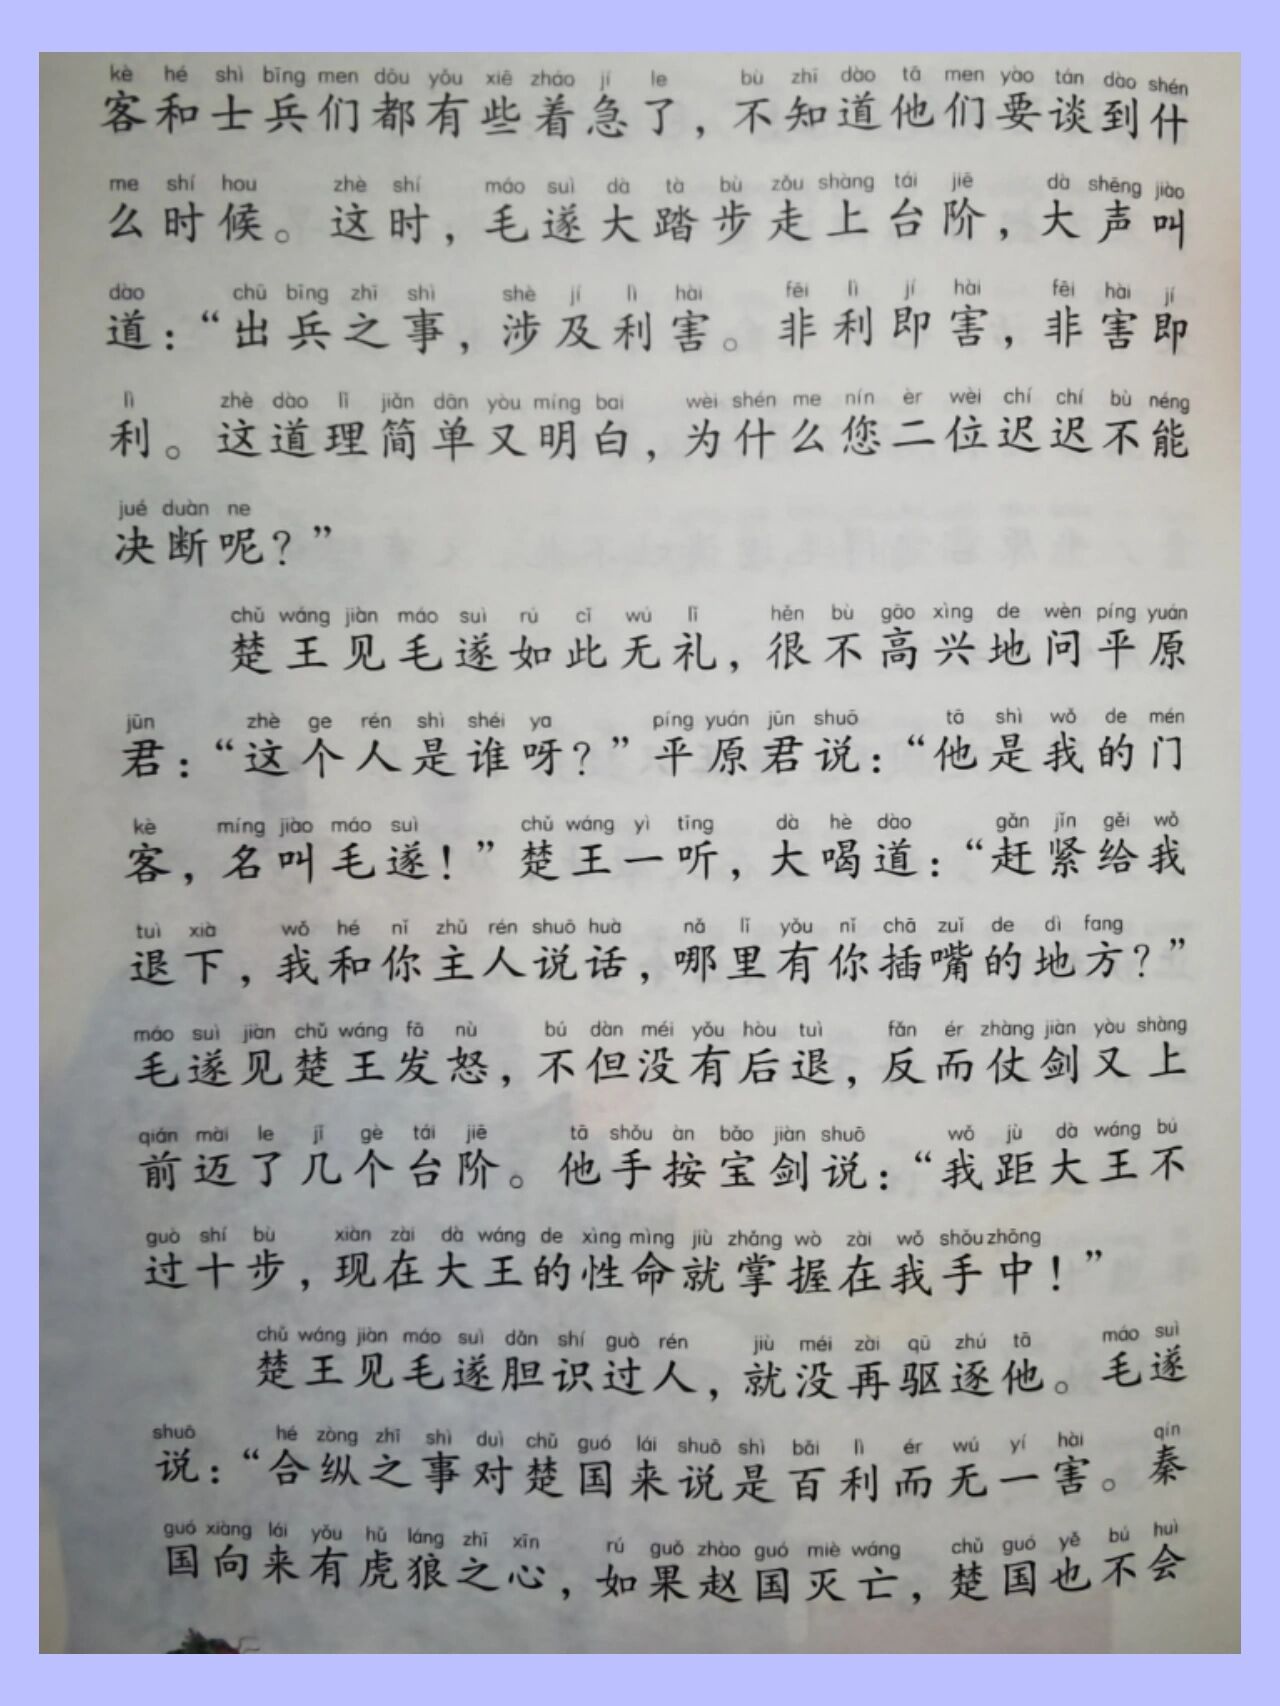 kè hé shì bīng men dōu yǒu xiē zháo jí le bù zhī dào tā men yào tán dào shén
客和士兵们都有些着急了，不知道他们要谈到什
me shí hou zhè shí máo suì dà tà bù zǒu shàng tái jiē dà shēng jiào
么时候。这时，毛遂大踏步走上台阶，大声叫
dào chū bīng zhī shì shè jí lì hài fēi lì jí hài fēi hài jí
道：“出兵之事，涉及利害。非利即害，非害即
lì zhè dào lǐ jiǎn dān yòu míng bai wèi shén me nín èr wèi chí chí bù néng
利。这道理简单又明白，为什么您二位迟迟不能
jué duàn ne
决断呢？”
chǔ wáng jiàn máo suì rú cǐ wú lǐ hěn bù gāo xìng de wèn píng yuán
楚王见毛遂如此无礼，很不高兴地问平原
jūn zhè ge rén shì shéi ya píng yuán jūn shuō tā shì wǒ de mén
君：“这个人是谁呀？”平原君说：“他是我的门
kè míng jiào máo suì chǔ wáng yì tīng dà hè dào gǎn jǐn gěi wǒ
客，名叫毛遂！”楚王一听，大喝道：“赶紧给我
tuì xià wǒ hé nǐ zhǔ rén shuō huà nǎ lǐ yǒu nǐ chā zuǐ de dì fang
退下，我和你主人说话，哪里有你插嘴的地方？”
máo suì jiàn chǔ wáng fā nù bú dàn méi yǒu hòu tuì fǎn ér zhàng jiàn yòu shàng
毛遂见楚王发怒，不但没有后退，反而仗剑又上
qián mài le jǐ gè tái jiē tā shǒu àn bǎo jiàn shuō wǒ jù dà wáng bú
前迈了几个台阶。他手按宝剑说：“我距大王不
guò shí bù xiàn zài dà wáng de xìng mìng jiù zhǎng wò zài wǒ shǒu zhōng
过十步，现在大王的性命就掌握在我手中！”
chǔ wáng jiàn máo suì dǎn shí guò rén jiù méi zài qū zhú tā máo suì
楚王见毛遂胆识过人，就没再驱逐他。毛遂
shuō hé zòng zhī shì duì chǔ guó lái shuō shì bǎi lì ér wú yí hài qín
说：“合纵之事对楚国来说是百利而无一害。秦
guó xiàng lái yǒu hǔ láng zhī xīn rú guǒ zhào guó miè wáng chǔ guó yě bú huì
国向来有虎狼之心，如果赵国灭亡，楚国也不会